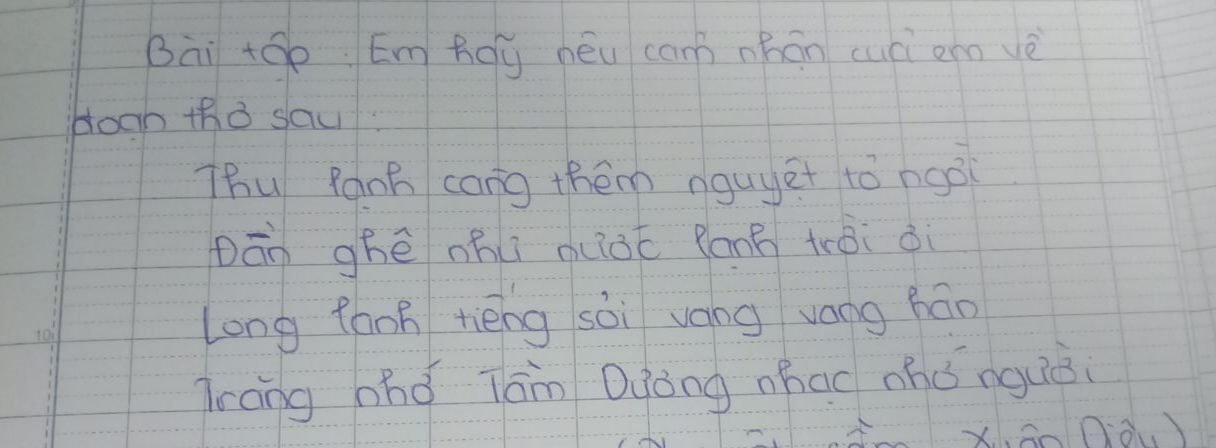 Bài tập: Em hãy nêu cảm nhận của em về
đoạn thơ sau:
Thu lạnh càng thêm nguyệt tỏ ngời
Đàn ghê như nước lạnh trời ơi
Long lanh tiếng sỏi vang vang hận
Trăng nhớ Tầm Dương nhạc nhớ người
Xuân Diệu)